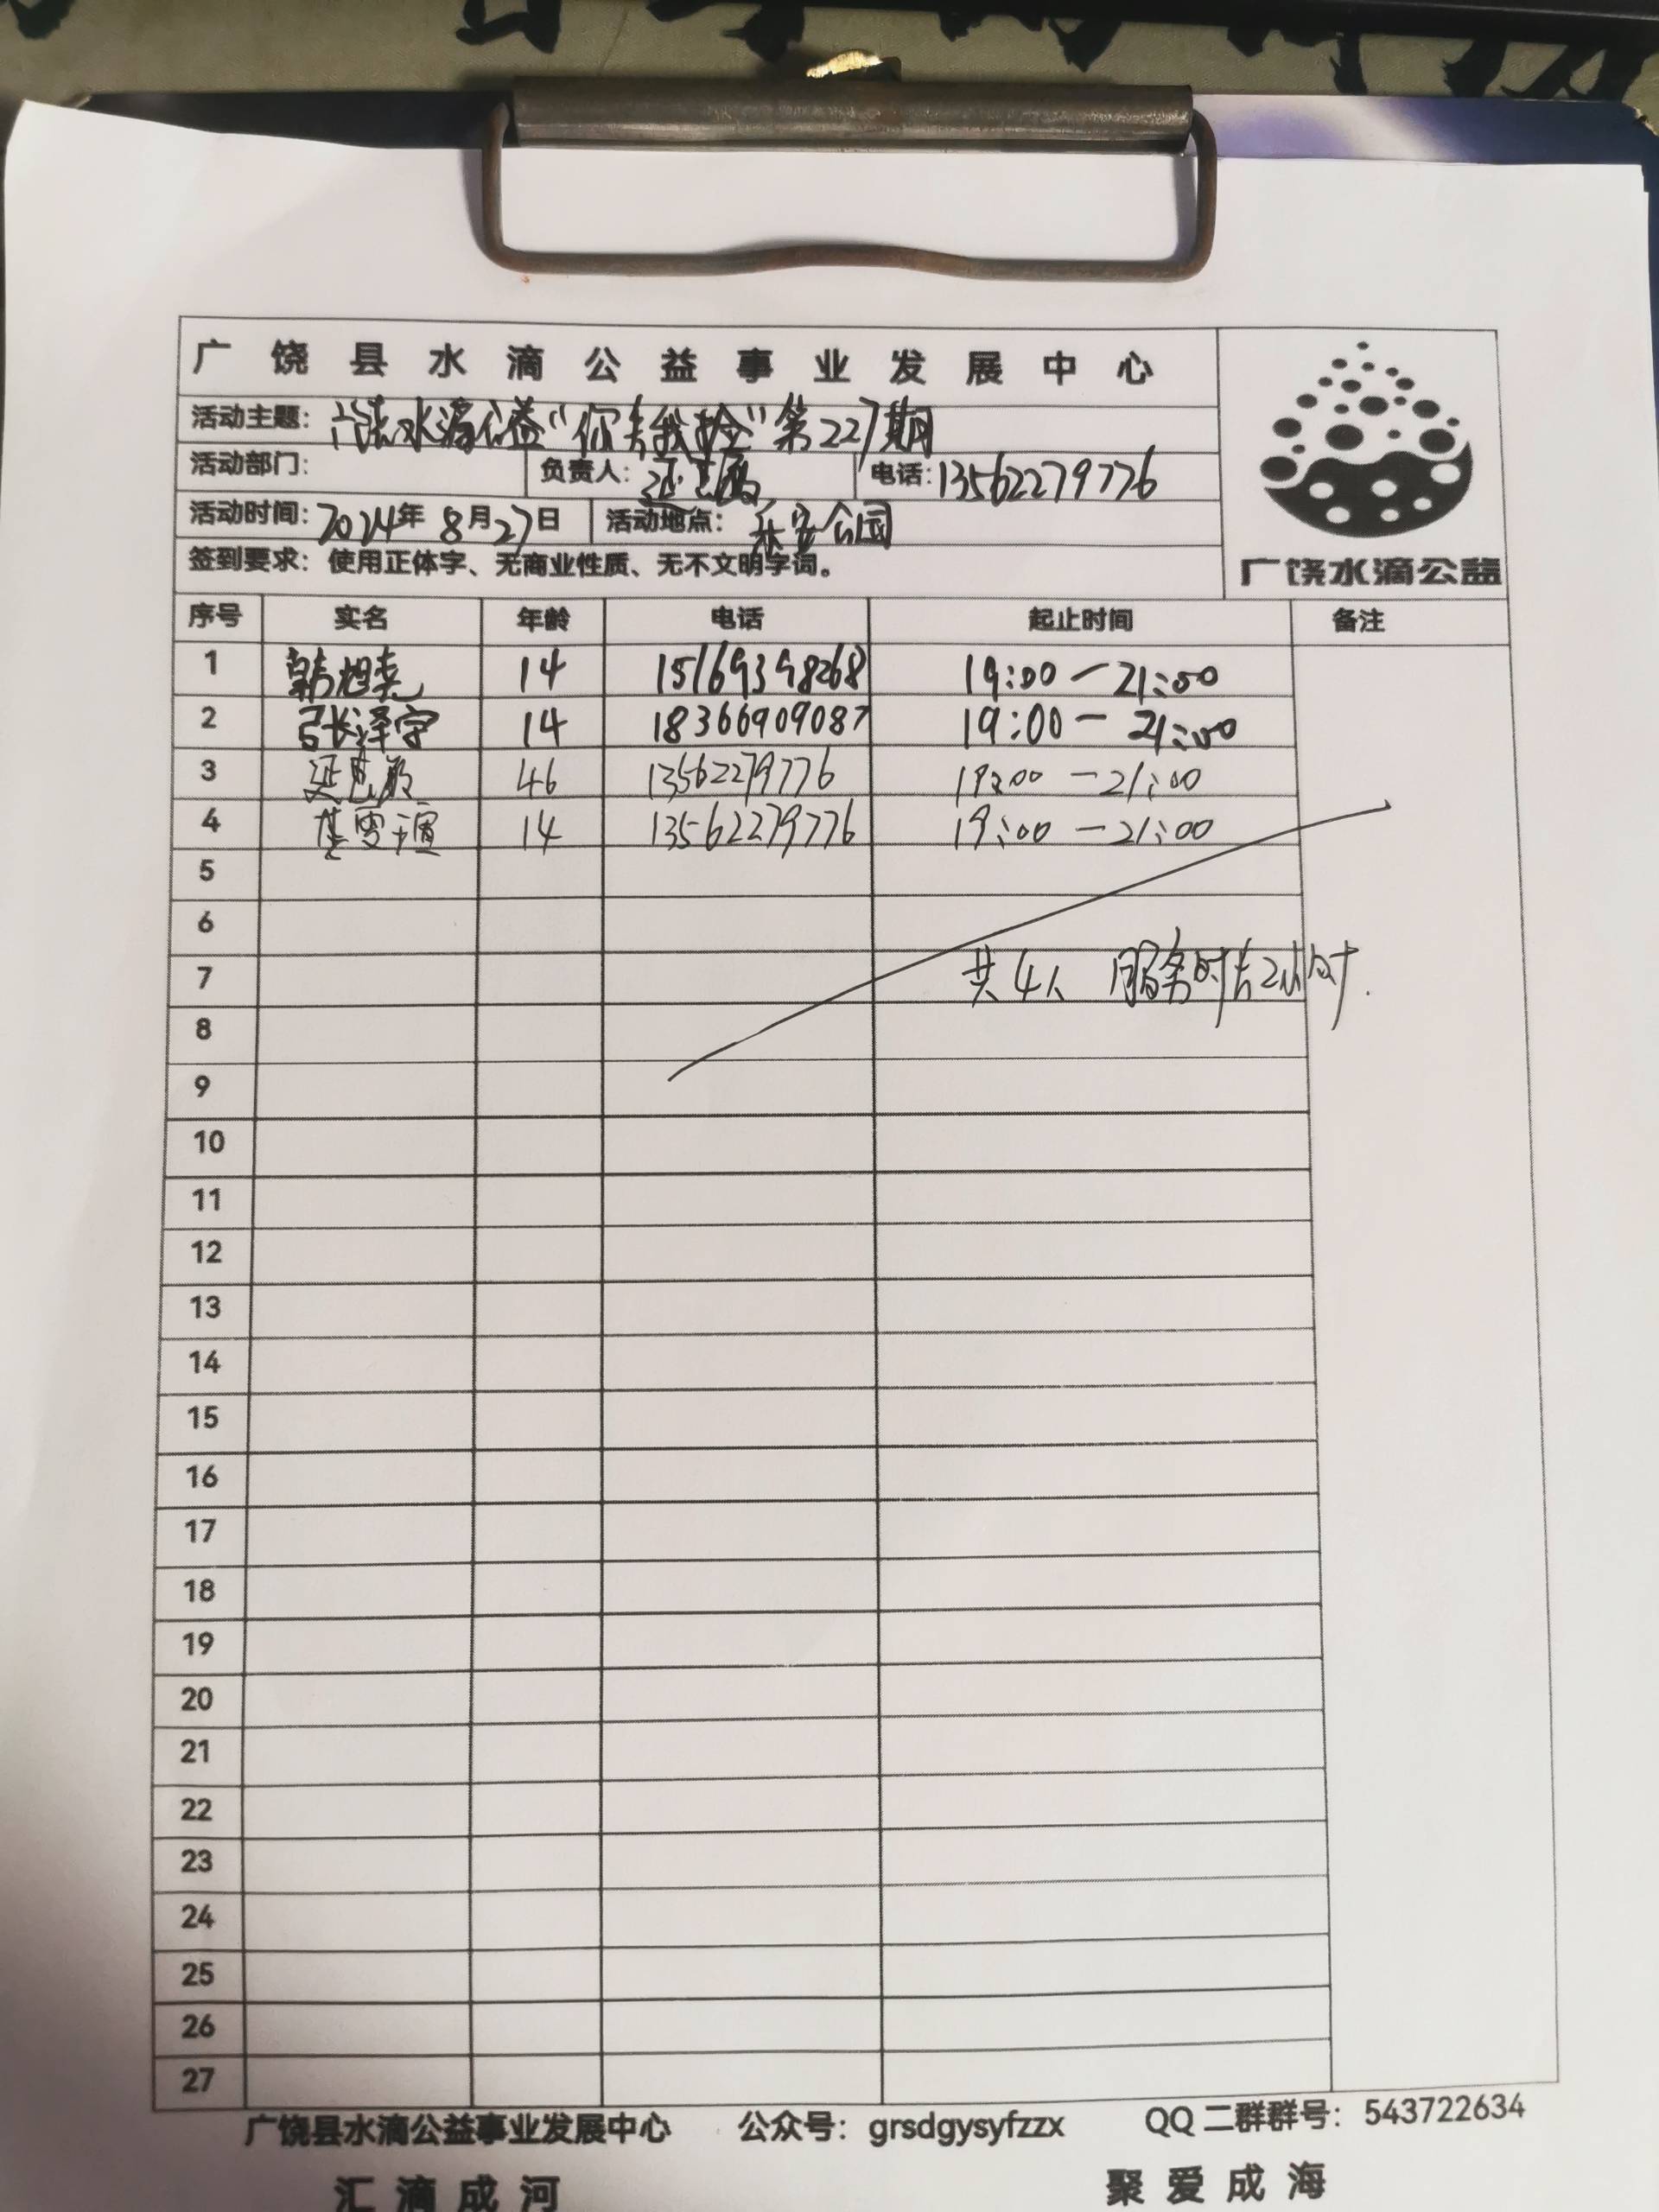 广饶县水滴公益事业发展中心
活动主题：广饶水滴公益“你丢我捡”第227期
活动部门： 负责人： 电话：13562279776
活动时间：2024年8月27日 活动地点：乐安公园
签到要求：使用正体字、无商业性质、无不文明字词。
广饶水滴公益
序号 实名 年龄 电话 起止时间 备注
1 韩旭尧 14 15169398268 19:00－21:00
2 张泽宇 14 18366909087 19:00－21:00
3 46 13562279776 19:00－21:00
4 14 13562279776 19:00－21:00
5
6
7 共4人 服务时长2小时.
8
9
10
11
12
13
14
15
16
17
18
19
20
21
22
23
24
25
26
27
广饶县水滴公益事业发展中心 公众号：grsdgysyfzzx QQ二群群号：543722634
汇滴成河 聚爱成海